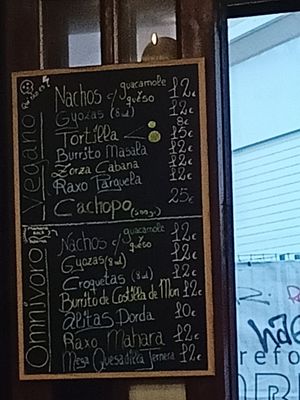 Vegano
Nachos c/ guacamole 12€
queso 12€
Gyozas (8u) 8€
Tortilla < 15€
Burrito Masala 12€
Zorza Cabana 12€
Raxo Farquela 12€
Cachopo 25€
Omnívoro
Nachos c/ guacamole 12€
queso 12€
Gyozas (8u) 12€
Croquetas (8u) 12€
Burrito de Costilla de Mon 12€
alitas Dorda 10€
Raxo Mahara 12€
Mega Quesadilla Ternera 12€
refo